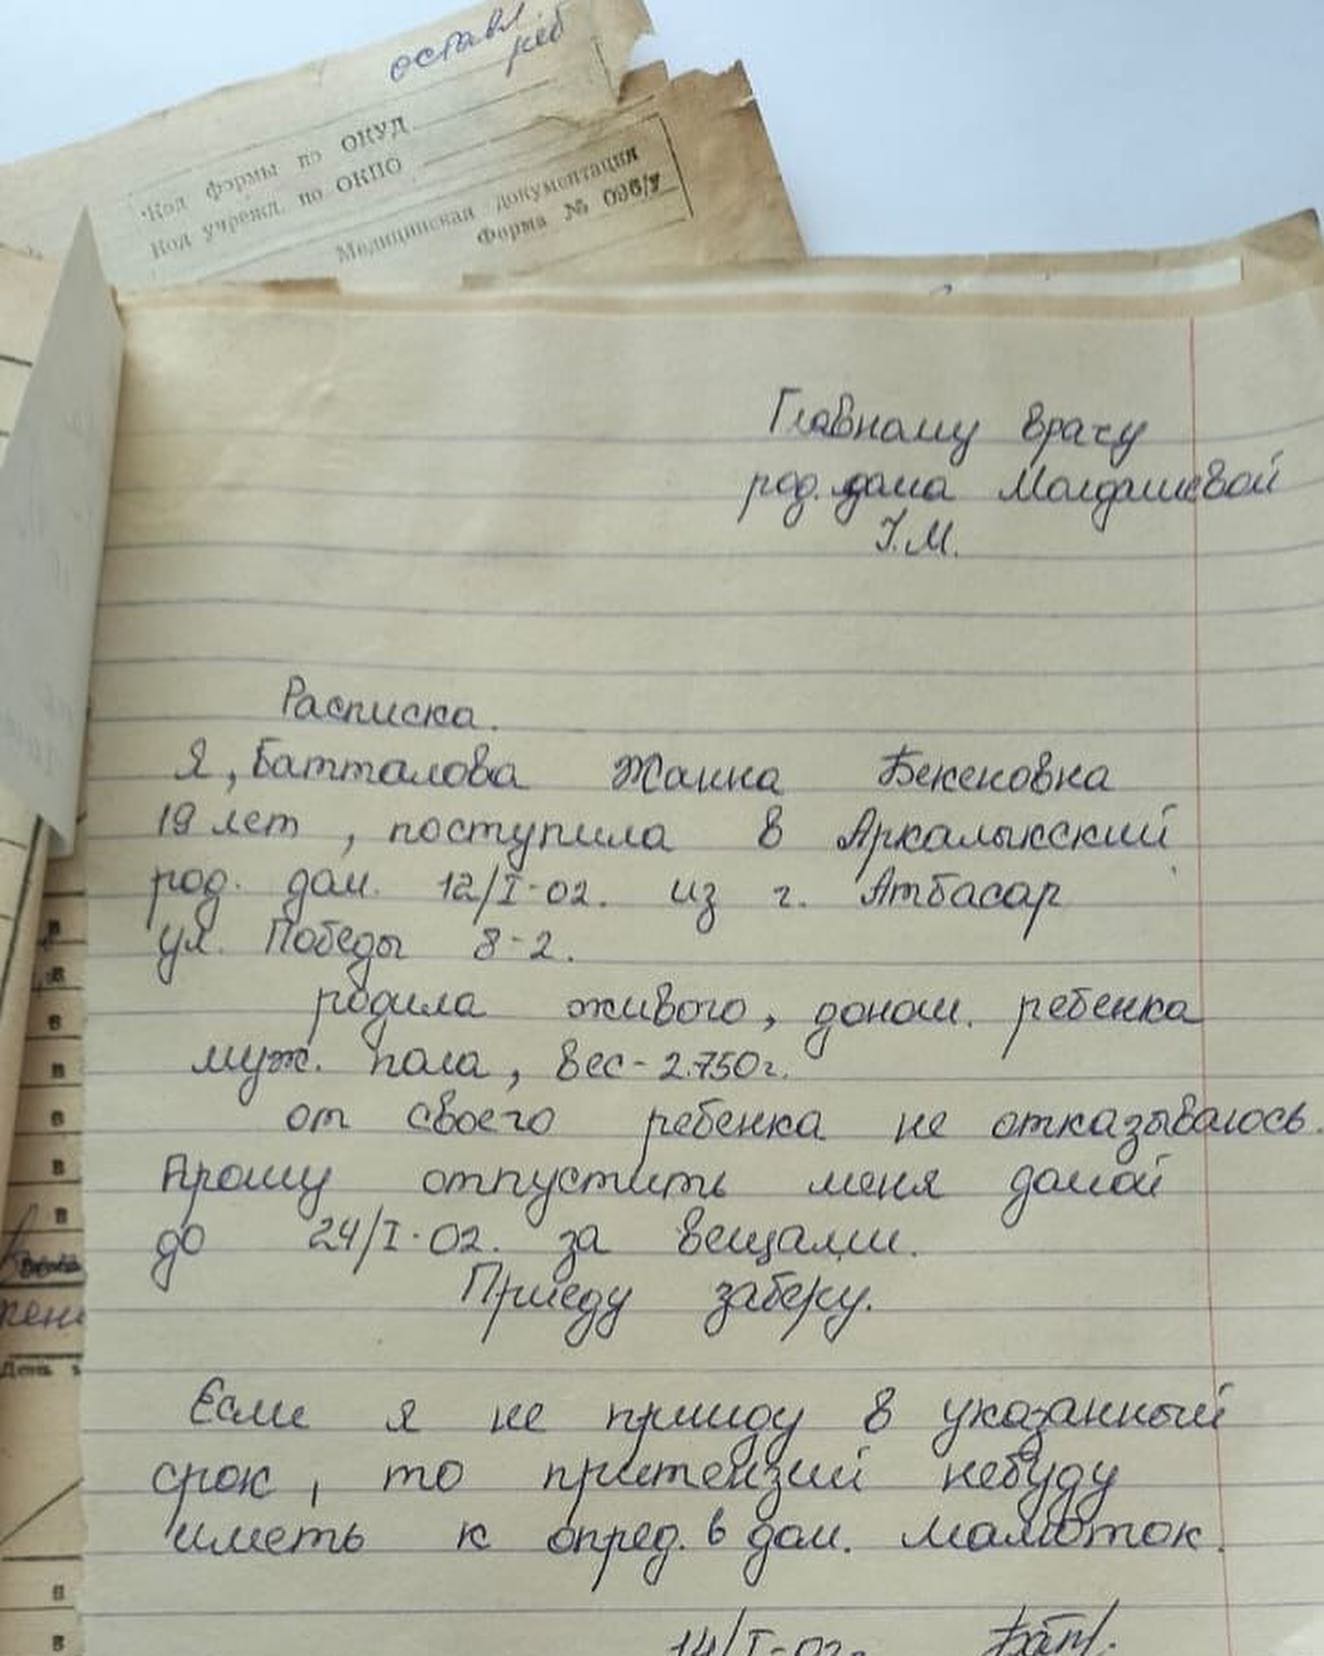 оставл.
реб
Код формы по ОКУД
Код учрежд. по ОКПО
Медицинская документация
Форма № 096/у
Главному врачу
род. дома Молдашевой
Г.М.
Расписка.
Я, Батталова Жанна Бекеновна
19 лет, поступила в Аркалыкский
род. дом. 12/I-02. из г. Атбасар
ул. Победы 8-2.
родила живого, донош. ребенка
муж. пола, вес-2.750г.
от своего ребенка не отказываюсь.
Прошу отпустить меня домой
до 24/I-02. за вещами.
Приеду заберу.
Если я не прииду в указанный
срок, то притензий небуду
иметь к опред. в дом. малюток.
14/I-02г. Батт.
в
в
в
в
в
в
в
День
в
в